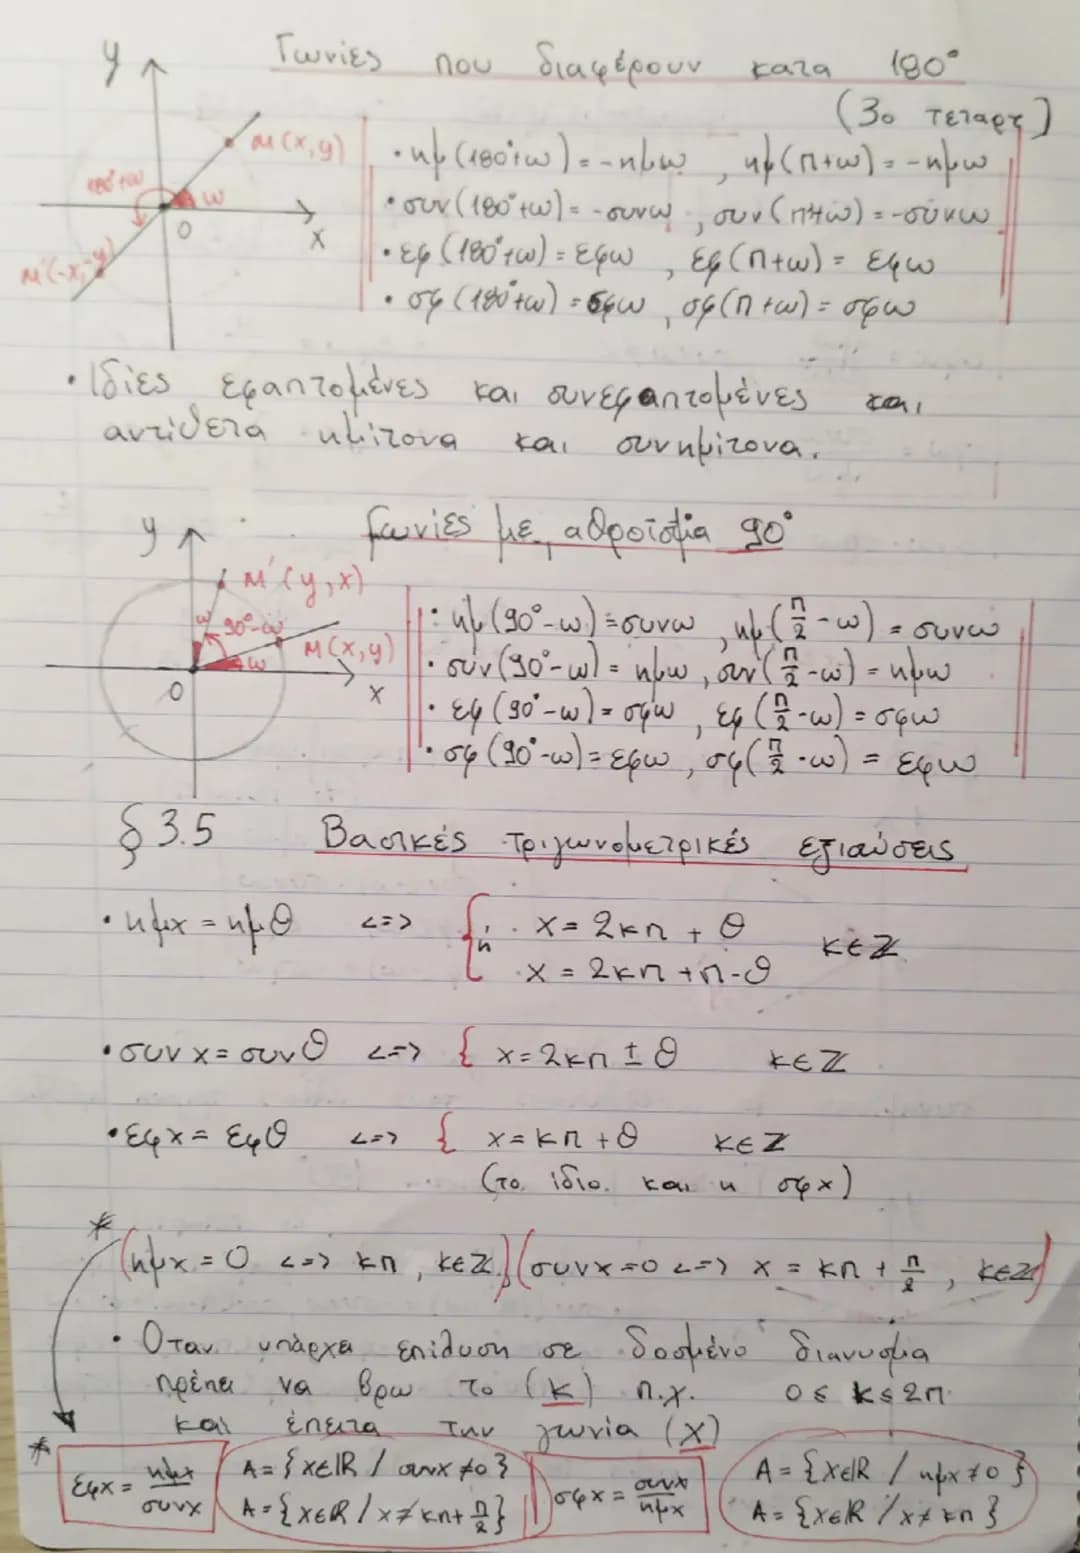 Γωνίες που διαφέρουν κατα 180°
(3ο τεταρτ)
y
M(x,y)
180°+ω
ω
O
x
M'(-x,-y)
• ημ(180°+ω) = -ημω , ημ(π+ω) = -ημω
• συν(180°+ω) = -συνω , συν(π+ω) = -συνω
• εφ(180°+ω) = εφω , εφ(π+ω) = εφω
• σφ(180°+ω) = σφω , σφ(π+ω) = σφω
• Ιδίες εφαπτομένες και συνεφαπτομένες και
αντίθετα ημίτονα και συνημίτονα.
Γωνίες με αθροίσμα 90°
y
M'(y,x)
ω
90°-ω
M(x,y)
ω
O
x
• ημ(90°-ω) = συνω , ημ(π/2 - ω) = συνω
• συν(90°-ω) = ημω , συν(π/2 - ω) = ημω
• εφ(90°-ω) = σφω , εφ(π/2 - ω) = σφω
• σφ(90°-ω) = εφω , σφ(π/2 - ω) = εφω
§ 3.5 Βασικές τριγωνομετρικές εξισώσεις
• ημx = ημθ <=> { x = 2κπ + θ
ή κ∈ℤ
x = 2κπ + π - θ
• συνx = συνθ <=> { x = 2κπ ± θ κ∈ℤ
• εφx = εφθ <=> { x = κπ + θ κ∈ℤ
(το ίδιο και η σφx)
* (ημx = 0 <=> κπ , κ∈ℤ), (συνx = 0 <=> x = κπ + π/2 , κ∈ℤ)
• Οταν υπάρχει επίλυση σε δοσμένο διανυσμα
πρέπει να βρω το (κ) π.χ. 0 ≤ κ ≤ 2π
και έπειτα την γωνία (x)
* εφx = ημx/συνx A = {x∈ℝ / συνx ≠ 0} σφx = συνx/ημx A = {x∈ℝ / ημx ≠ 0}
A = {x∈ℝ / x ≠ κπ + π/2} A = {x∈ℝ / x ≠ κπ}